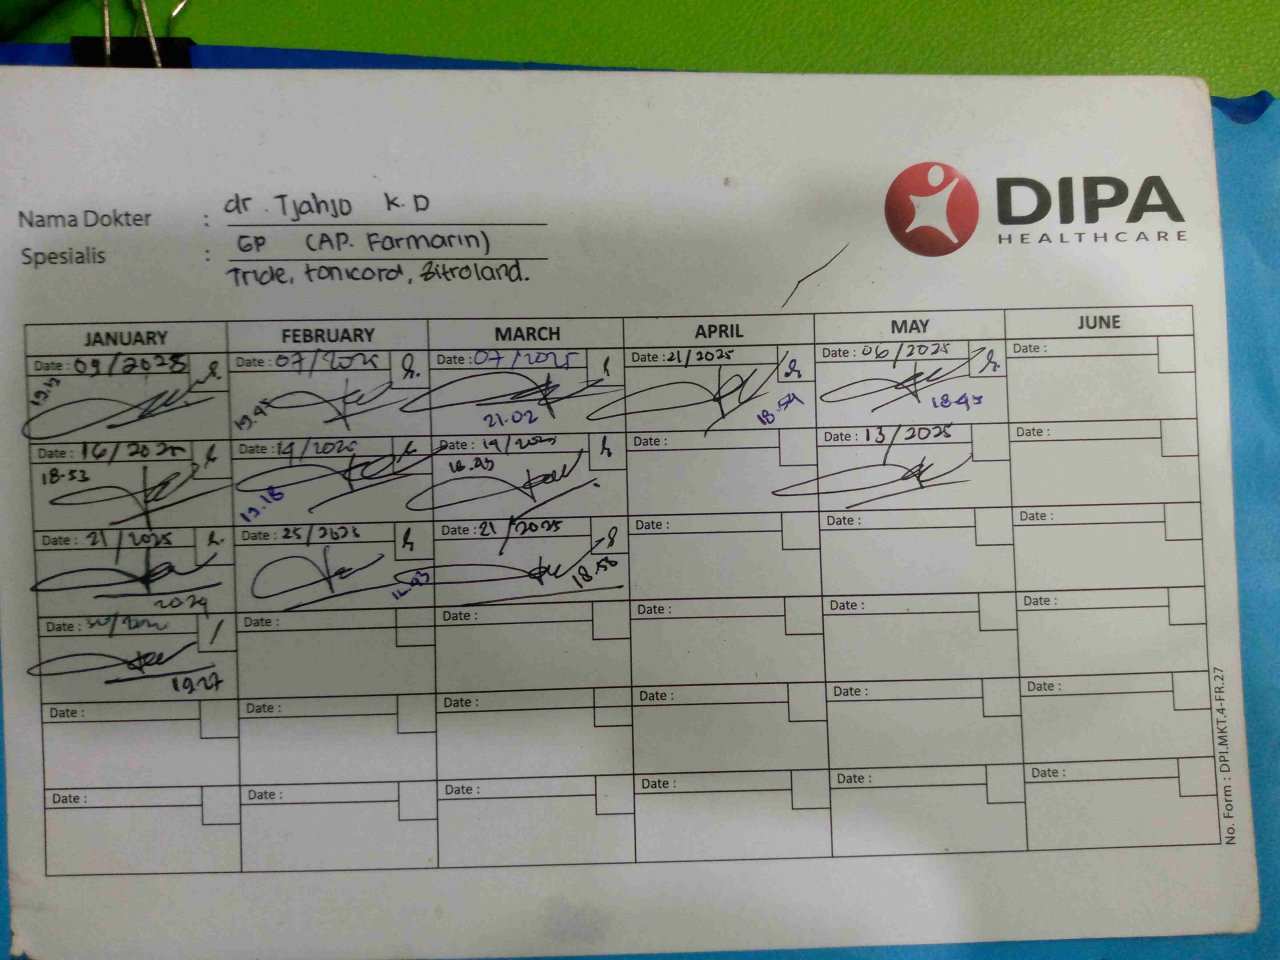 DIPA
HEALTHCARE
Nama Dokter : dr. Tjahjo K.D
Spesialis : GP (AP. Farmarin)
Tride, tonicord, Zitroland.
JANUARY FEBRUARY MARCH APRIL MAY JUNE
Date : 09/2025 Date : 07/2025 Date : 07/2025 Date : 21/2025 Date : 06/2025 Date :
21.02 18.54
Date : 16/2025 Date : 14/2025 Date : 14/2025 Date : Date : 13/2025 Date :
18-53 19.18
Date : 21/2025 Date : 25/2025 Date : 21/2025 Date : Date : Date :
18.58
Date : Date : Date : Date : Date : Date :
19.27
Date : Date : Date : Date : Date : Date :
Date : Date : Date : Date : Date : Date :
No. Form : DPI.MKT.4-FR.27